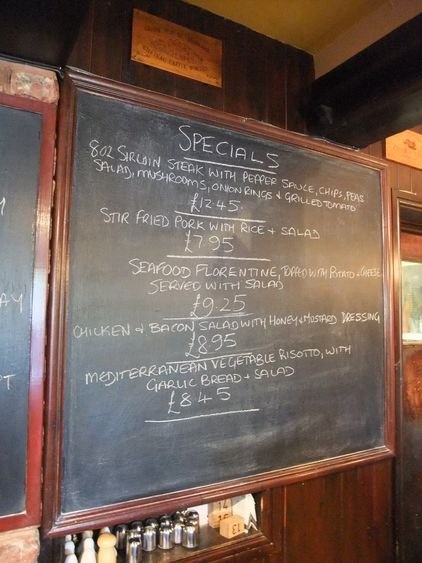 SPECIALS
8OZ SIRLOIN STEAK WITH PEPPER SAUCE, CHIPS, PEAS
SALAD, MUSHROOMS, ONION RINGS & GRILLED TOMATO
£12.45
STIR FRIED PORK WITH RICE + SALAD
£7.95
SEAFOOD FLORENTINE, TOPPED WITH POTATO + CHEESE
SERVED WITH SALAD
£9.25
CHICKEN + BACON SALAD WITH HONEY + MUSTARD DRESSING
£8.95
MEDITERRANEAN VEGETABLE RISOTTO, WITH
GARLIC BREAD + SALAD
£8.45